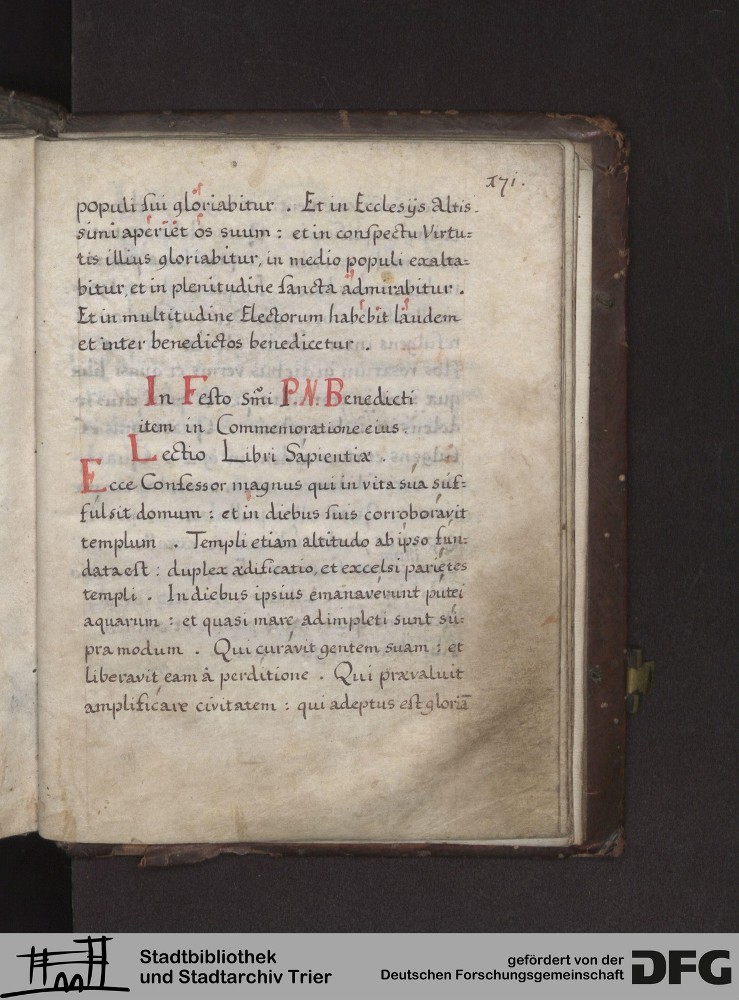 171.
populi sui gloriabitur . Et in Ecclesijs Altis-
simi aperiet os suum : et in conspectu Virtu=
tis illius gloriabitur, in medio populi exalta=
bitur, et in plenitudine sancta admirabitur .
Et in multitudine Electorum habebit laudem
et inter benedictos benedicetur .
In Festo Smi P. N. Benedicti
item in Commemoratione eius
Lectio Libri Sapientiæ .
Ecce Confessor magnus qui in vita súa súf=
fúlsit domum : et in diebus suis corroborávit
templum . Templi etiam altitudo ab ipso fun=
data est : duplex ædificatio, et excelsi parietes
templi . In diebus ipsius emanavérunt putei
aquarum : et quasi mare adimpleti sunt sú=
pra modum . Qui curávit gentem suam : et
liberavit eam à perditione . Qui prævaluit
amplificáre civitatem : qui adeptus est gloriā
Stadtbibliothek
und Stadtarchiv Trier
gefördert von der
Deutschen Forschungsgemeinschaft
DFG